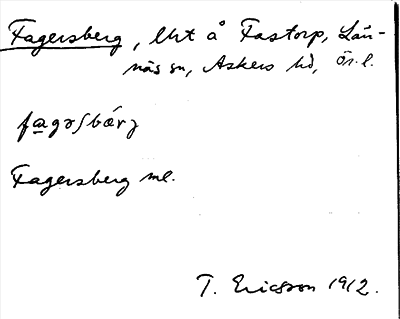 Fagersberg, lht å Fastorp, Län-
näs sn, Askers hd, Ör. l.
fagəʃbárj
Fagersberg ml.
T. Ericsson 1912.